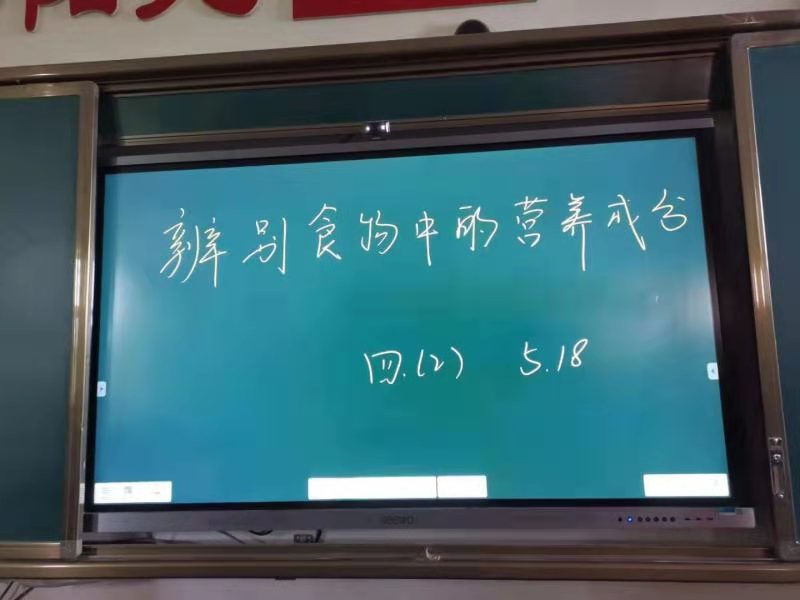 辨别食物中的营养成分
四.(2) 5.18
seewo